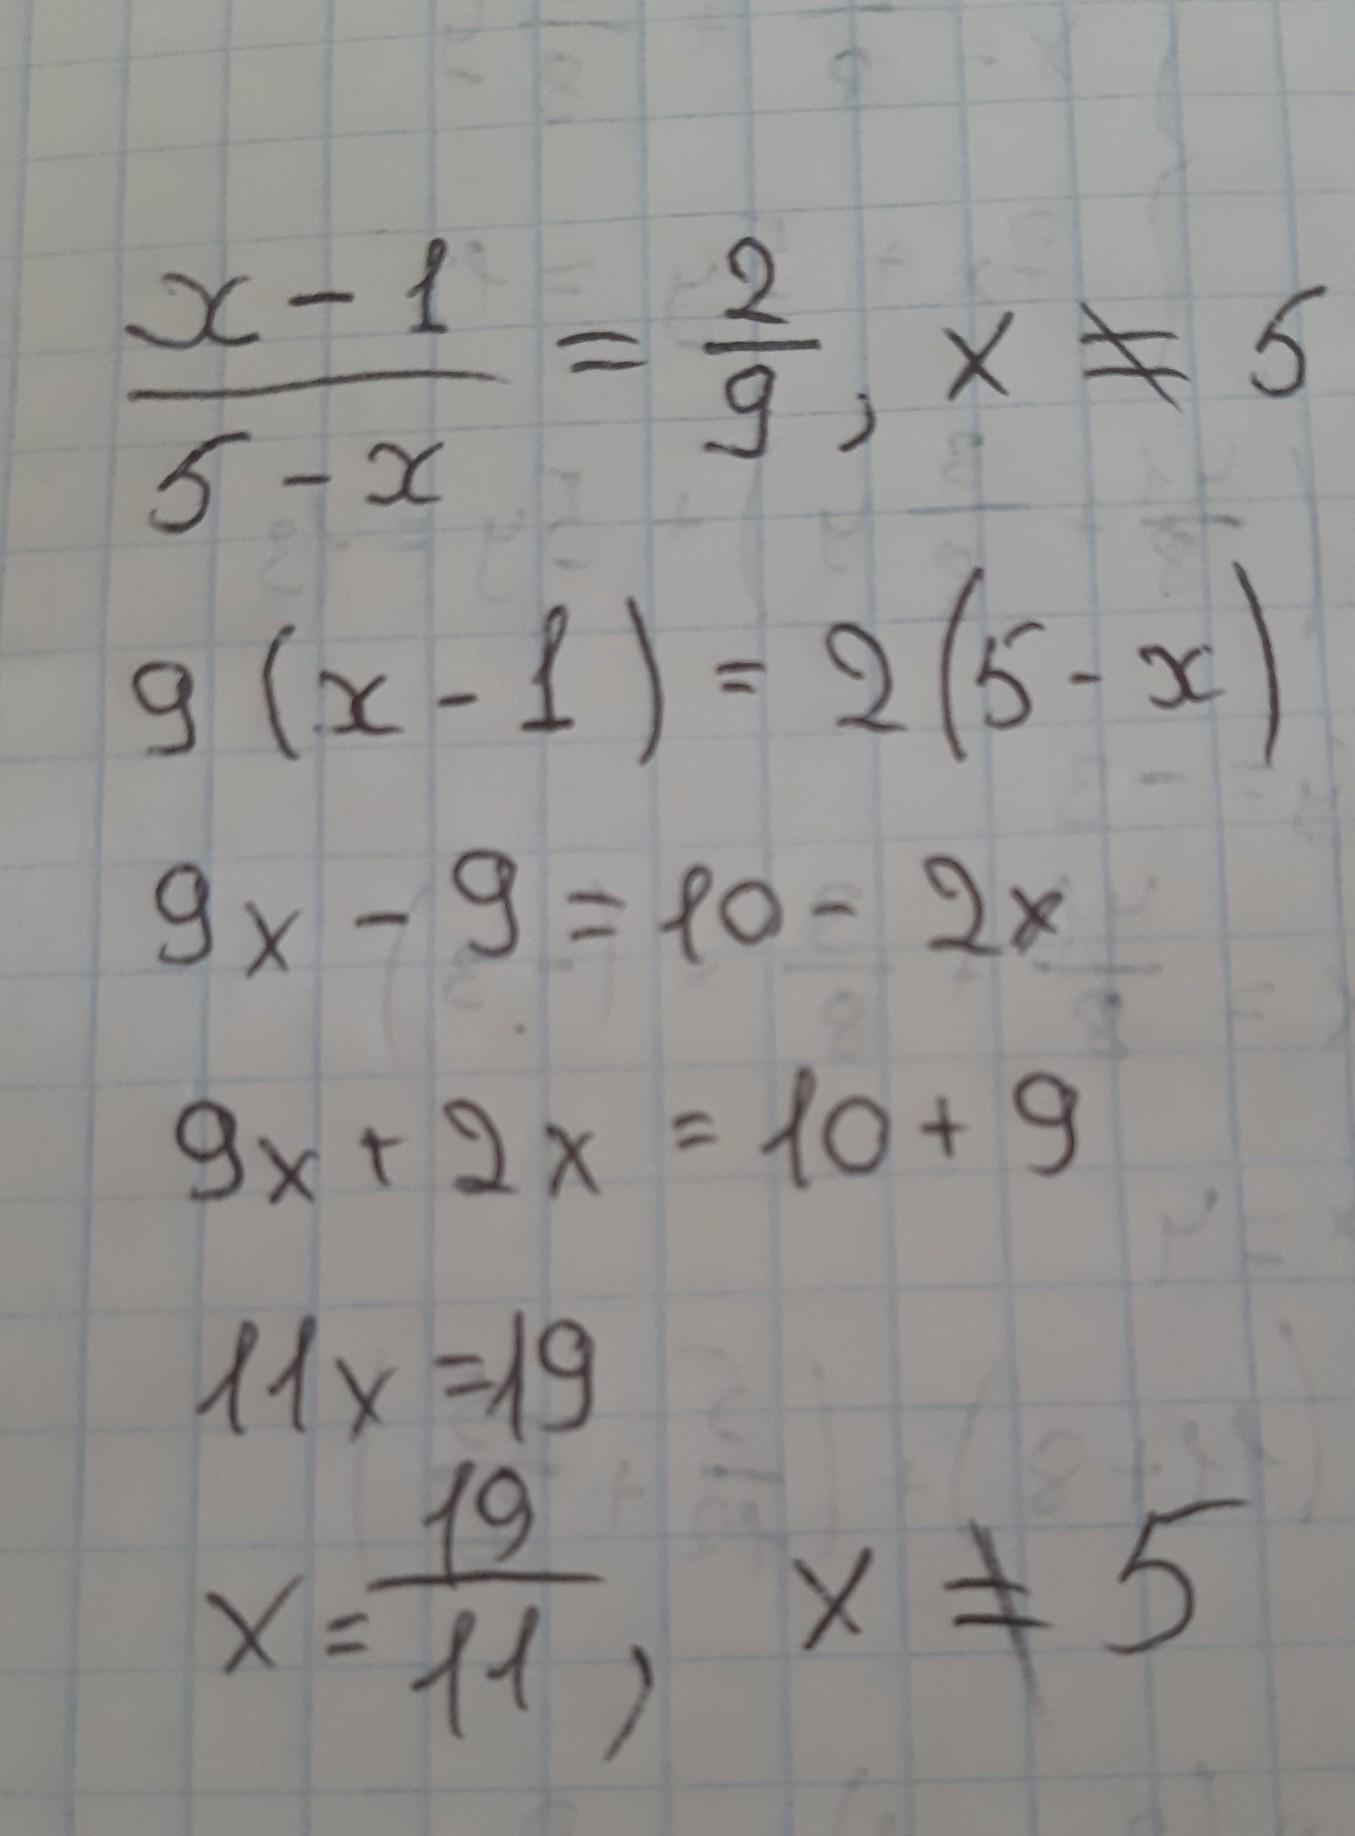 (x - 1)/(5 - x) = 2/9, x ≠ 5
9(x - 1) = 2(5 - x)
9x - 9 = 10 - 2x
9x + 2x = 10 + 9
11x = 19
x = 19/11, x ≠ 5